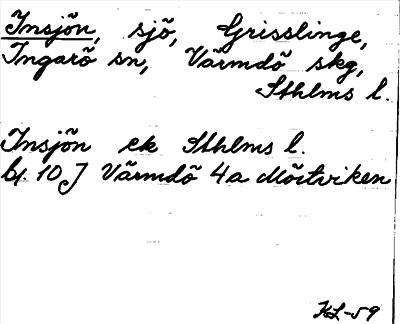 Insjön, sjö, Grisslinge,
Ingarö sn, Värmdö skg,
Sthlms l.
Insjön ek Sthlms l.
bl. 10 J Värmdö 4a Mörtviken
KL-59